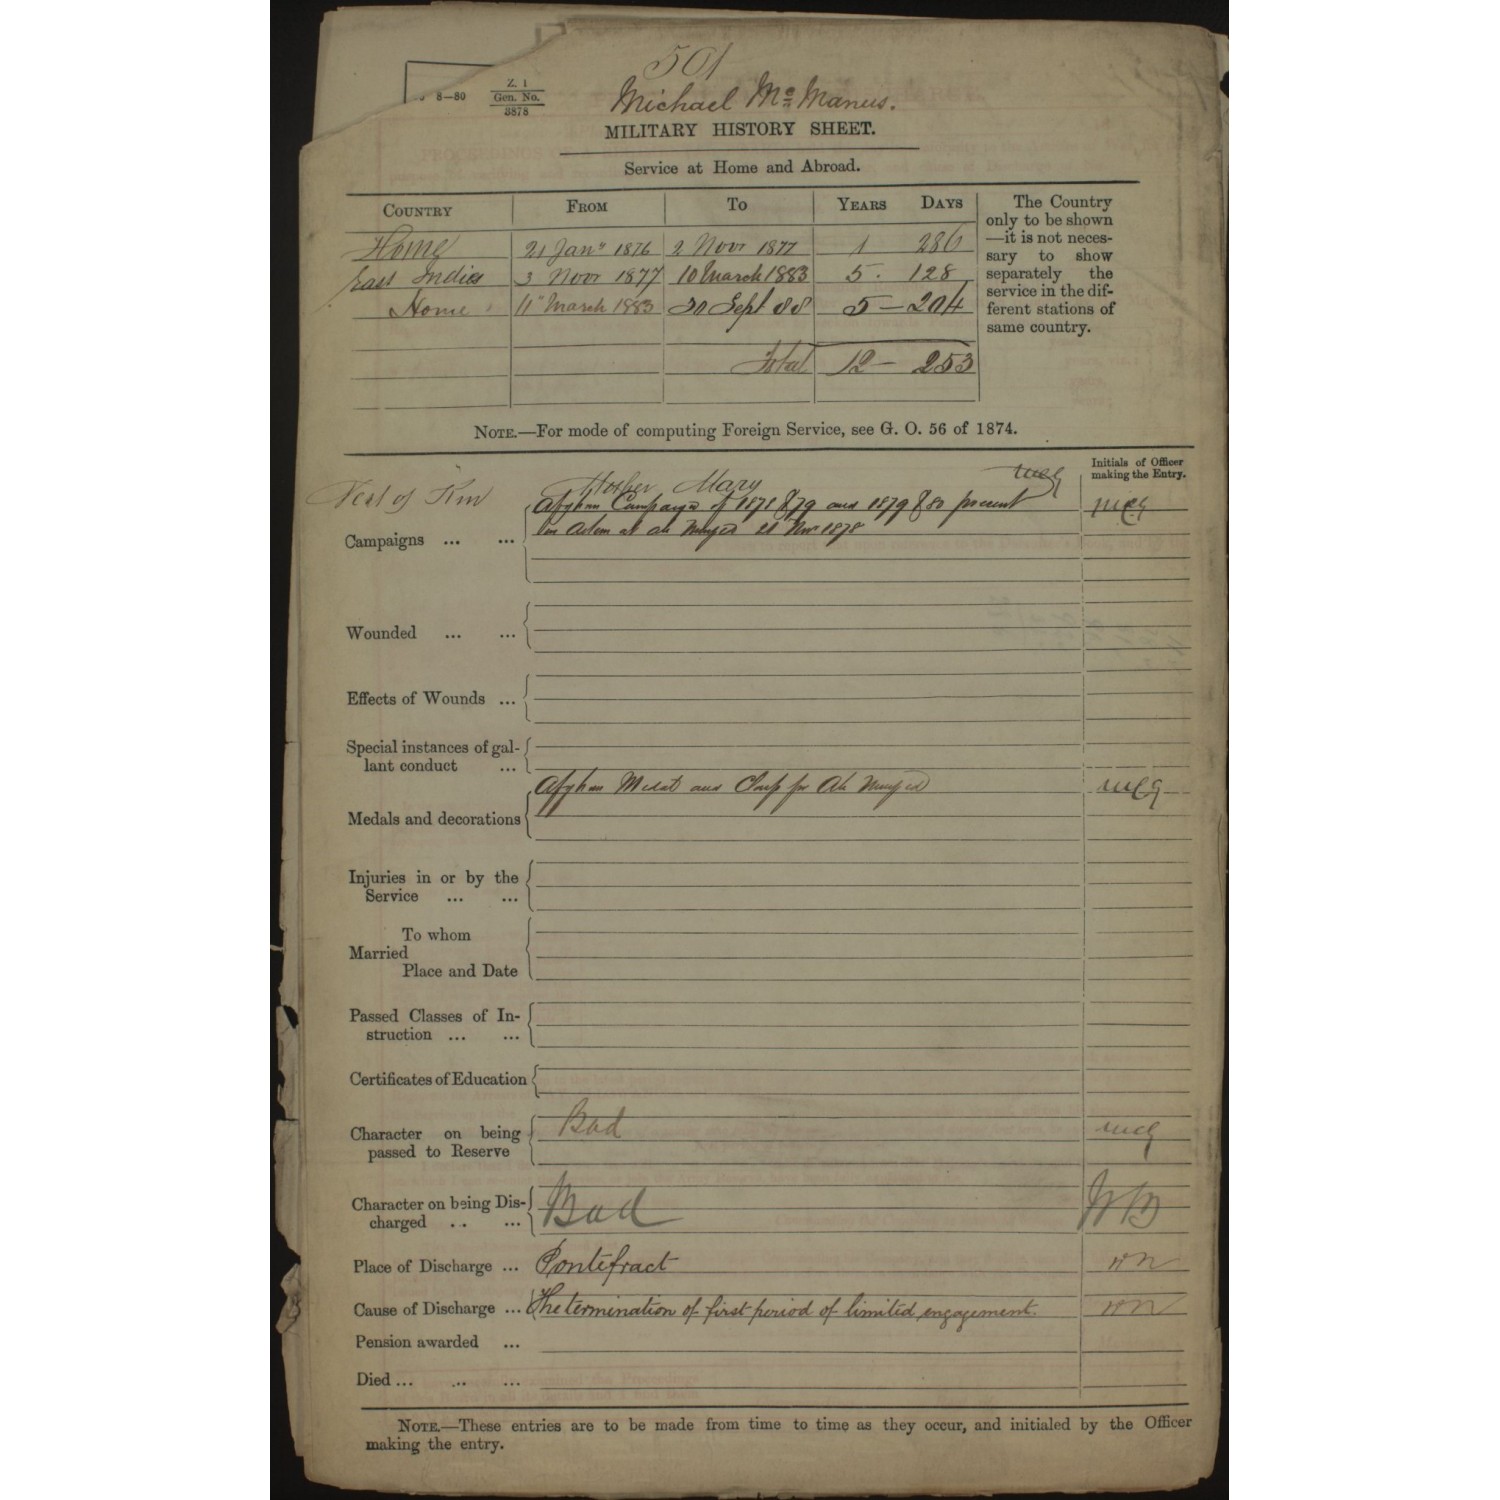 501
8—80
Z. 1
Gen. No.
3878
Michael Mc Manus.
MILITARY HISTORY SHEET.
Service at Home and Abroad.
COUNTRY FROM TO YEARS DAYS
Home 21 Jany 1876 2 Novr 1877 1 286
East Indies 3 Novr 1877 10 March 1883 5 . 128
Home 11 March 1883 30 Sept 88 5 — 204
Total 12 — 253
The Country
only to be shown
—it is not neces-
sary to show
separately the
service in the dif-
ferent stations of
same country.
NOTE.—For mode of computing Foreign Service, see G. O. 56 of 1874.
Initials of Officer
making the Entry.
Next of Kin Mother Mary
Campaigns ... ... Afghan Campaign of 1878 & 79 and 1879 & 80 present
in action at Ali Musjid 21 Nov 1878
Wounded ... ...
Effects of Wounds ...
Special instances of gal-
lant conduct ...
Medals and decorations Afghan Medal and Clasp for Ali Musjid
Injuries in or by the
Service ... ...
To whom
Married
Place and Date
Passed Classes of In-
struction ... ...
Certificates of Education
Character on being
passed to Reserve Bad
Character on being Dis-
charged .. ... Bad
Place of Discharge ... Pontefract
Cause of Discharge ... The termination of first period of limited engagement.
Pension awarded ...
Died ... .. ...
NOTE.—These entries are to be made from time to time as they occur, and initialed by the Officer
making the entry.